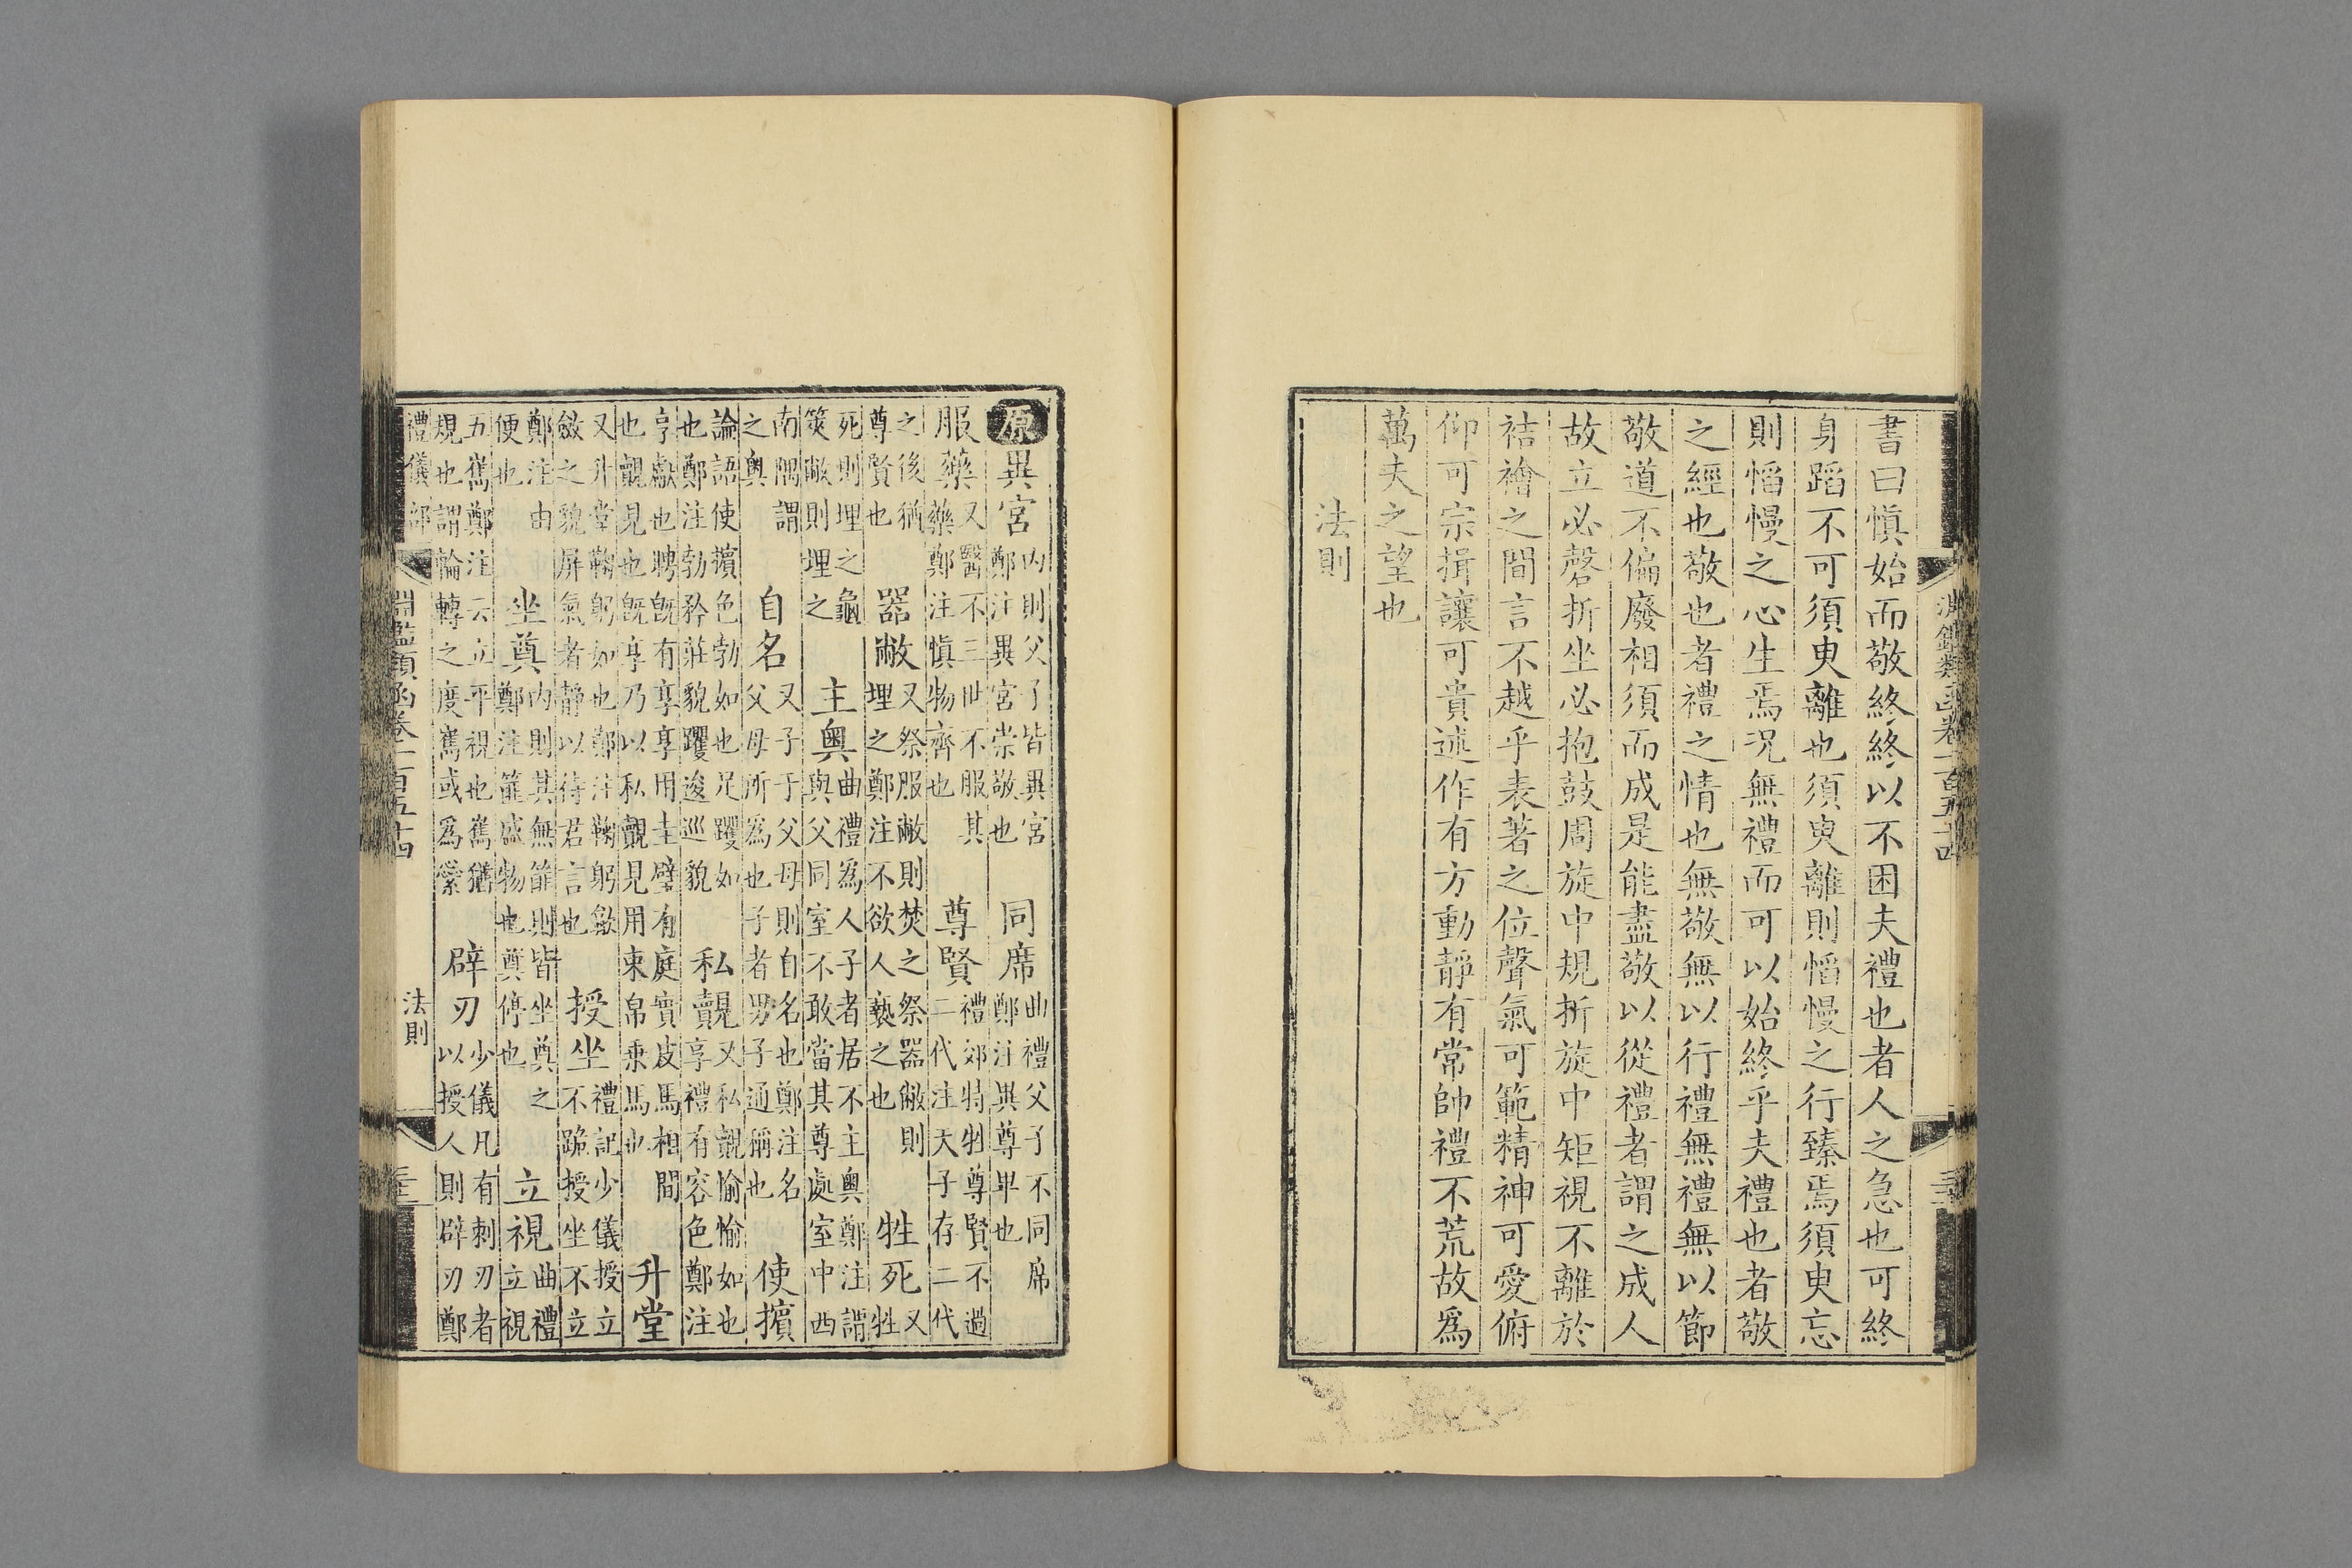 淵鑑類函卷一百五十四
書曰慎始而敬終終以不困夫禮也者人之急也可終
身蹈不可須臾離也須臾離則慆慢之行臻焉須臾忘
則慆慢之心生焉況無禮而可以始終乎夫禮也者敬
之經也敬也者禮之情也無敬無以行禮無禮無以節
敬道不偏廢相須而成是能盡敬以從禮者謂之成人
故立必磬折坐必抱鼓周旋中規折旋中矩視不離於
袺襘之間言不越乎表著之位聲氣可範精神可愛俯
仰可宗揖讓可貴述作有方動靜有常帥禮不荒故爲
萬夫之望也
法則
原異宮内則父子皆異宮鄭注異宮崇敬也 同席曲禮父子不同席鄭注異尊卑也
服藥又醫不三世不服其藥鄭注慎物齊也 尊賢禮郊特牲尊賢不過二代注天子存二代
之後猶尊賢也 器敝又祭服敝則焚之祭器敝則埋之鄭注不欲人褻之也 牲死又牲
死則埋之龜筴敝則埋之 主奧曲禮為人子者居不主奧鄭注謂與父同室不敢當其尊處室中西
南隅謂之奧 自名又子于父母則自名也鄭注名父母所爲也子者男子通稱也 使擯
論語使擯色勃如也足躩如也鄭注勃矜莊貌躩逡巡貌 私覿又私覿愉愉如也享禮有容色鄭注
享獻也聘既有享享用圭璧有庭實皮馬相間也覿見也既享乃以私覿見用束帛乘馬也 升堂
又升堂鞠躬如也鄭注鞠躬歛歛之貌屏氣者靜以待君言也 授坐禮記少儀授立不跪授坐不立
鄭注由便也 坐奠内則其無篚則皆坐奠之鄭注篚盛物也奠停也 立視曲禮立視
五嶲鄭注云立平視也嶲猶規也謂輪轉之度嶲或爲縈 辟刃少儀凡有刺刃者以授人則辟刃鄭
禮儀部 淵鑑類函卷一百五十四 法則